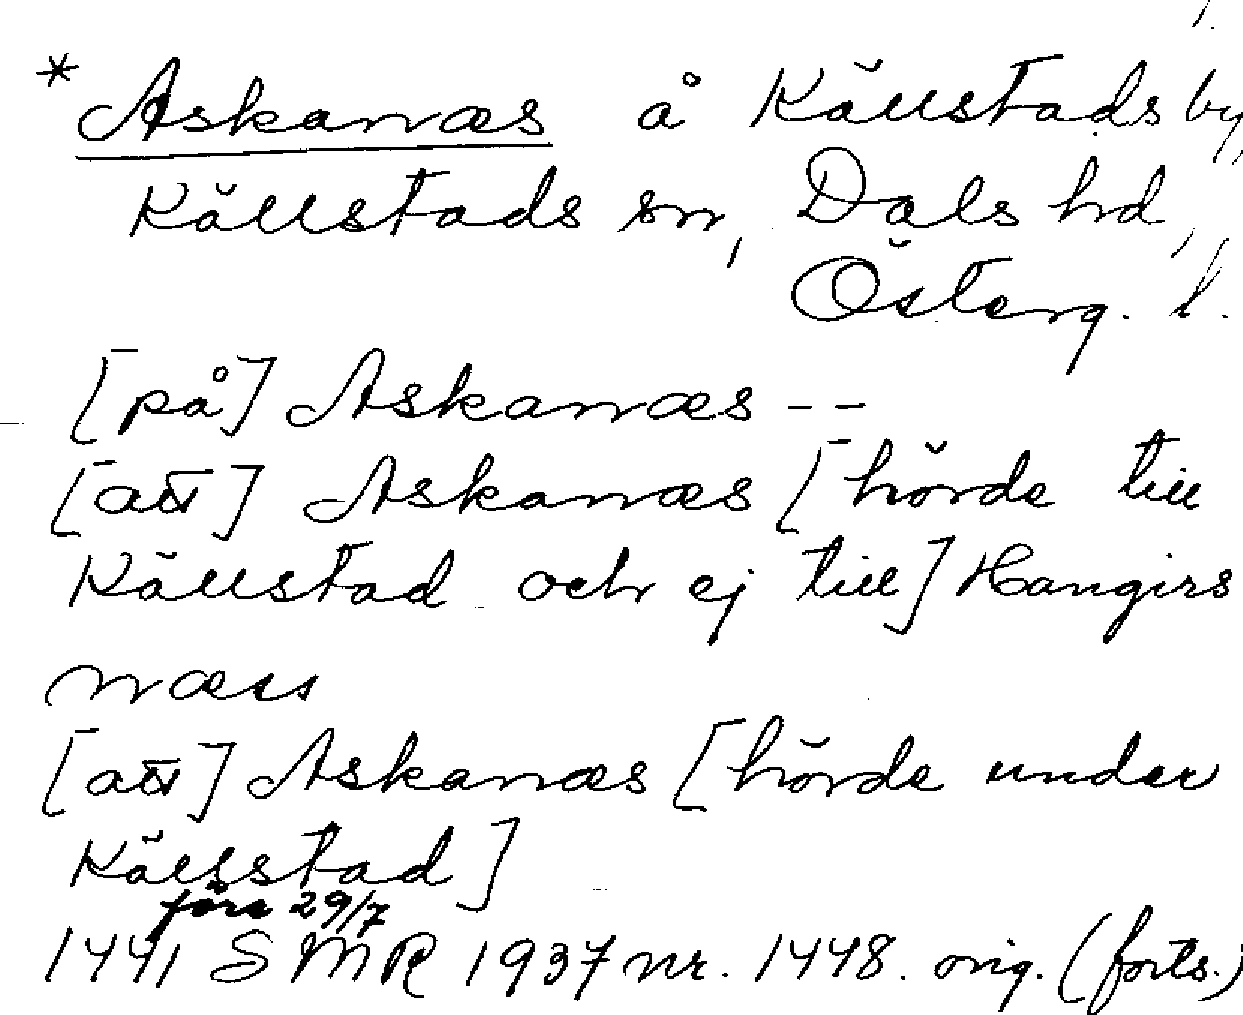 1.
*Askanæs å Källstads by,
Källstads sn, Dals hd,
Österg. l.
[på] Askanæs --
[att] Askanæs [hörde till
Källstad och ej till] Hangirs
næss
[att] Askanæs [hörde under
Källstad]
före 29/7
1441 SMR 1937 nr. 1448. orig. (forts.)